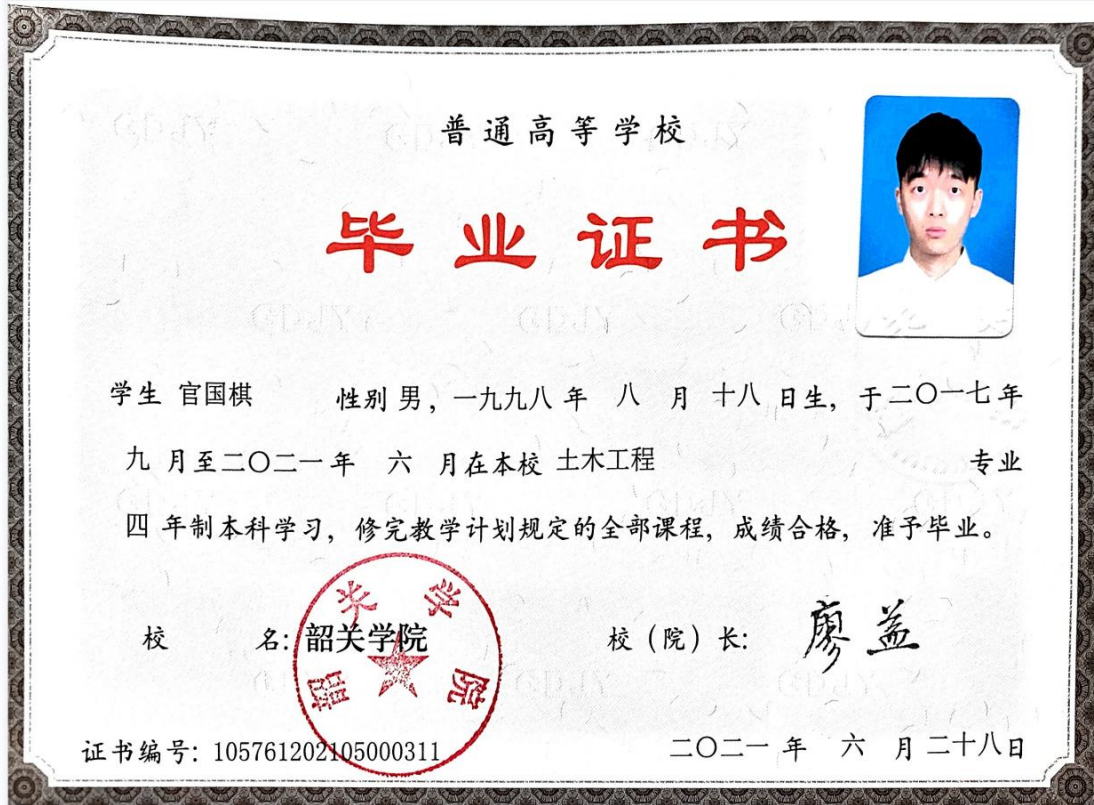 普通高等学校
毕业证书
学生 官国棋 性别 男，一九九八 年 八 月 十八 日生，于二〇一七 年
九 月至二〇二一 年 六 月在本校 土木工程 专业
四 年制本科学习，修完教学计划规定的全部课程，成绩合格，准予毕业。
校 名：韶关学院 校（院）长： 廖益
韶关学院
证书编号：105761202105000311 二〇二一 年 六 月 二十八日